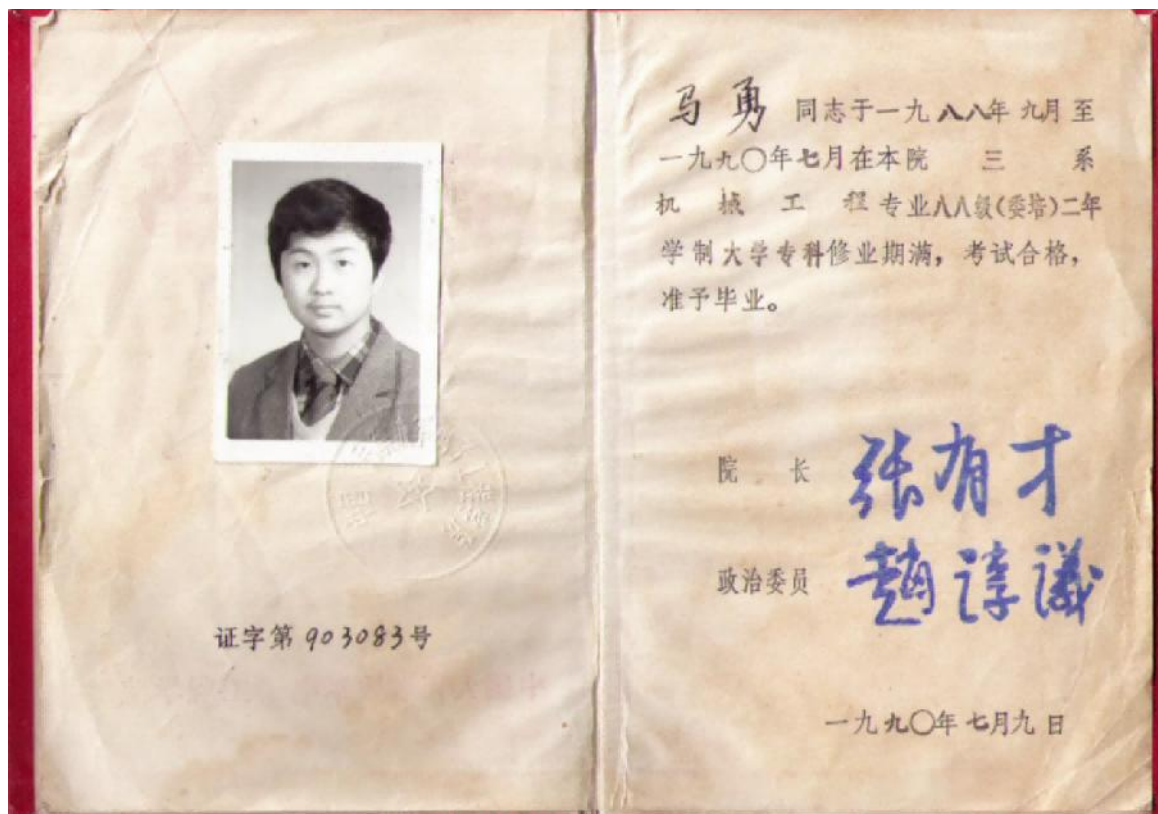 证字第903083号
马勇 同志于一九八八年九月至
一九九〇年七月在本院 三 系
机械工程专业八八级(委培)二年
学制大学专科修业期满，考试合格，
准予毕业。
院 长 张有才
政治委员 赵谆议
一九九〇年七月九日